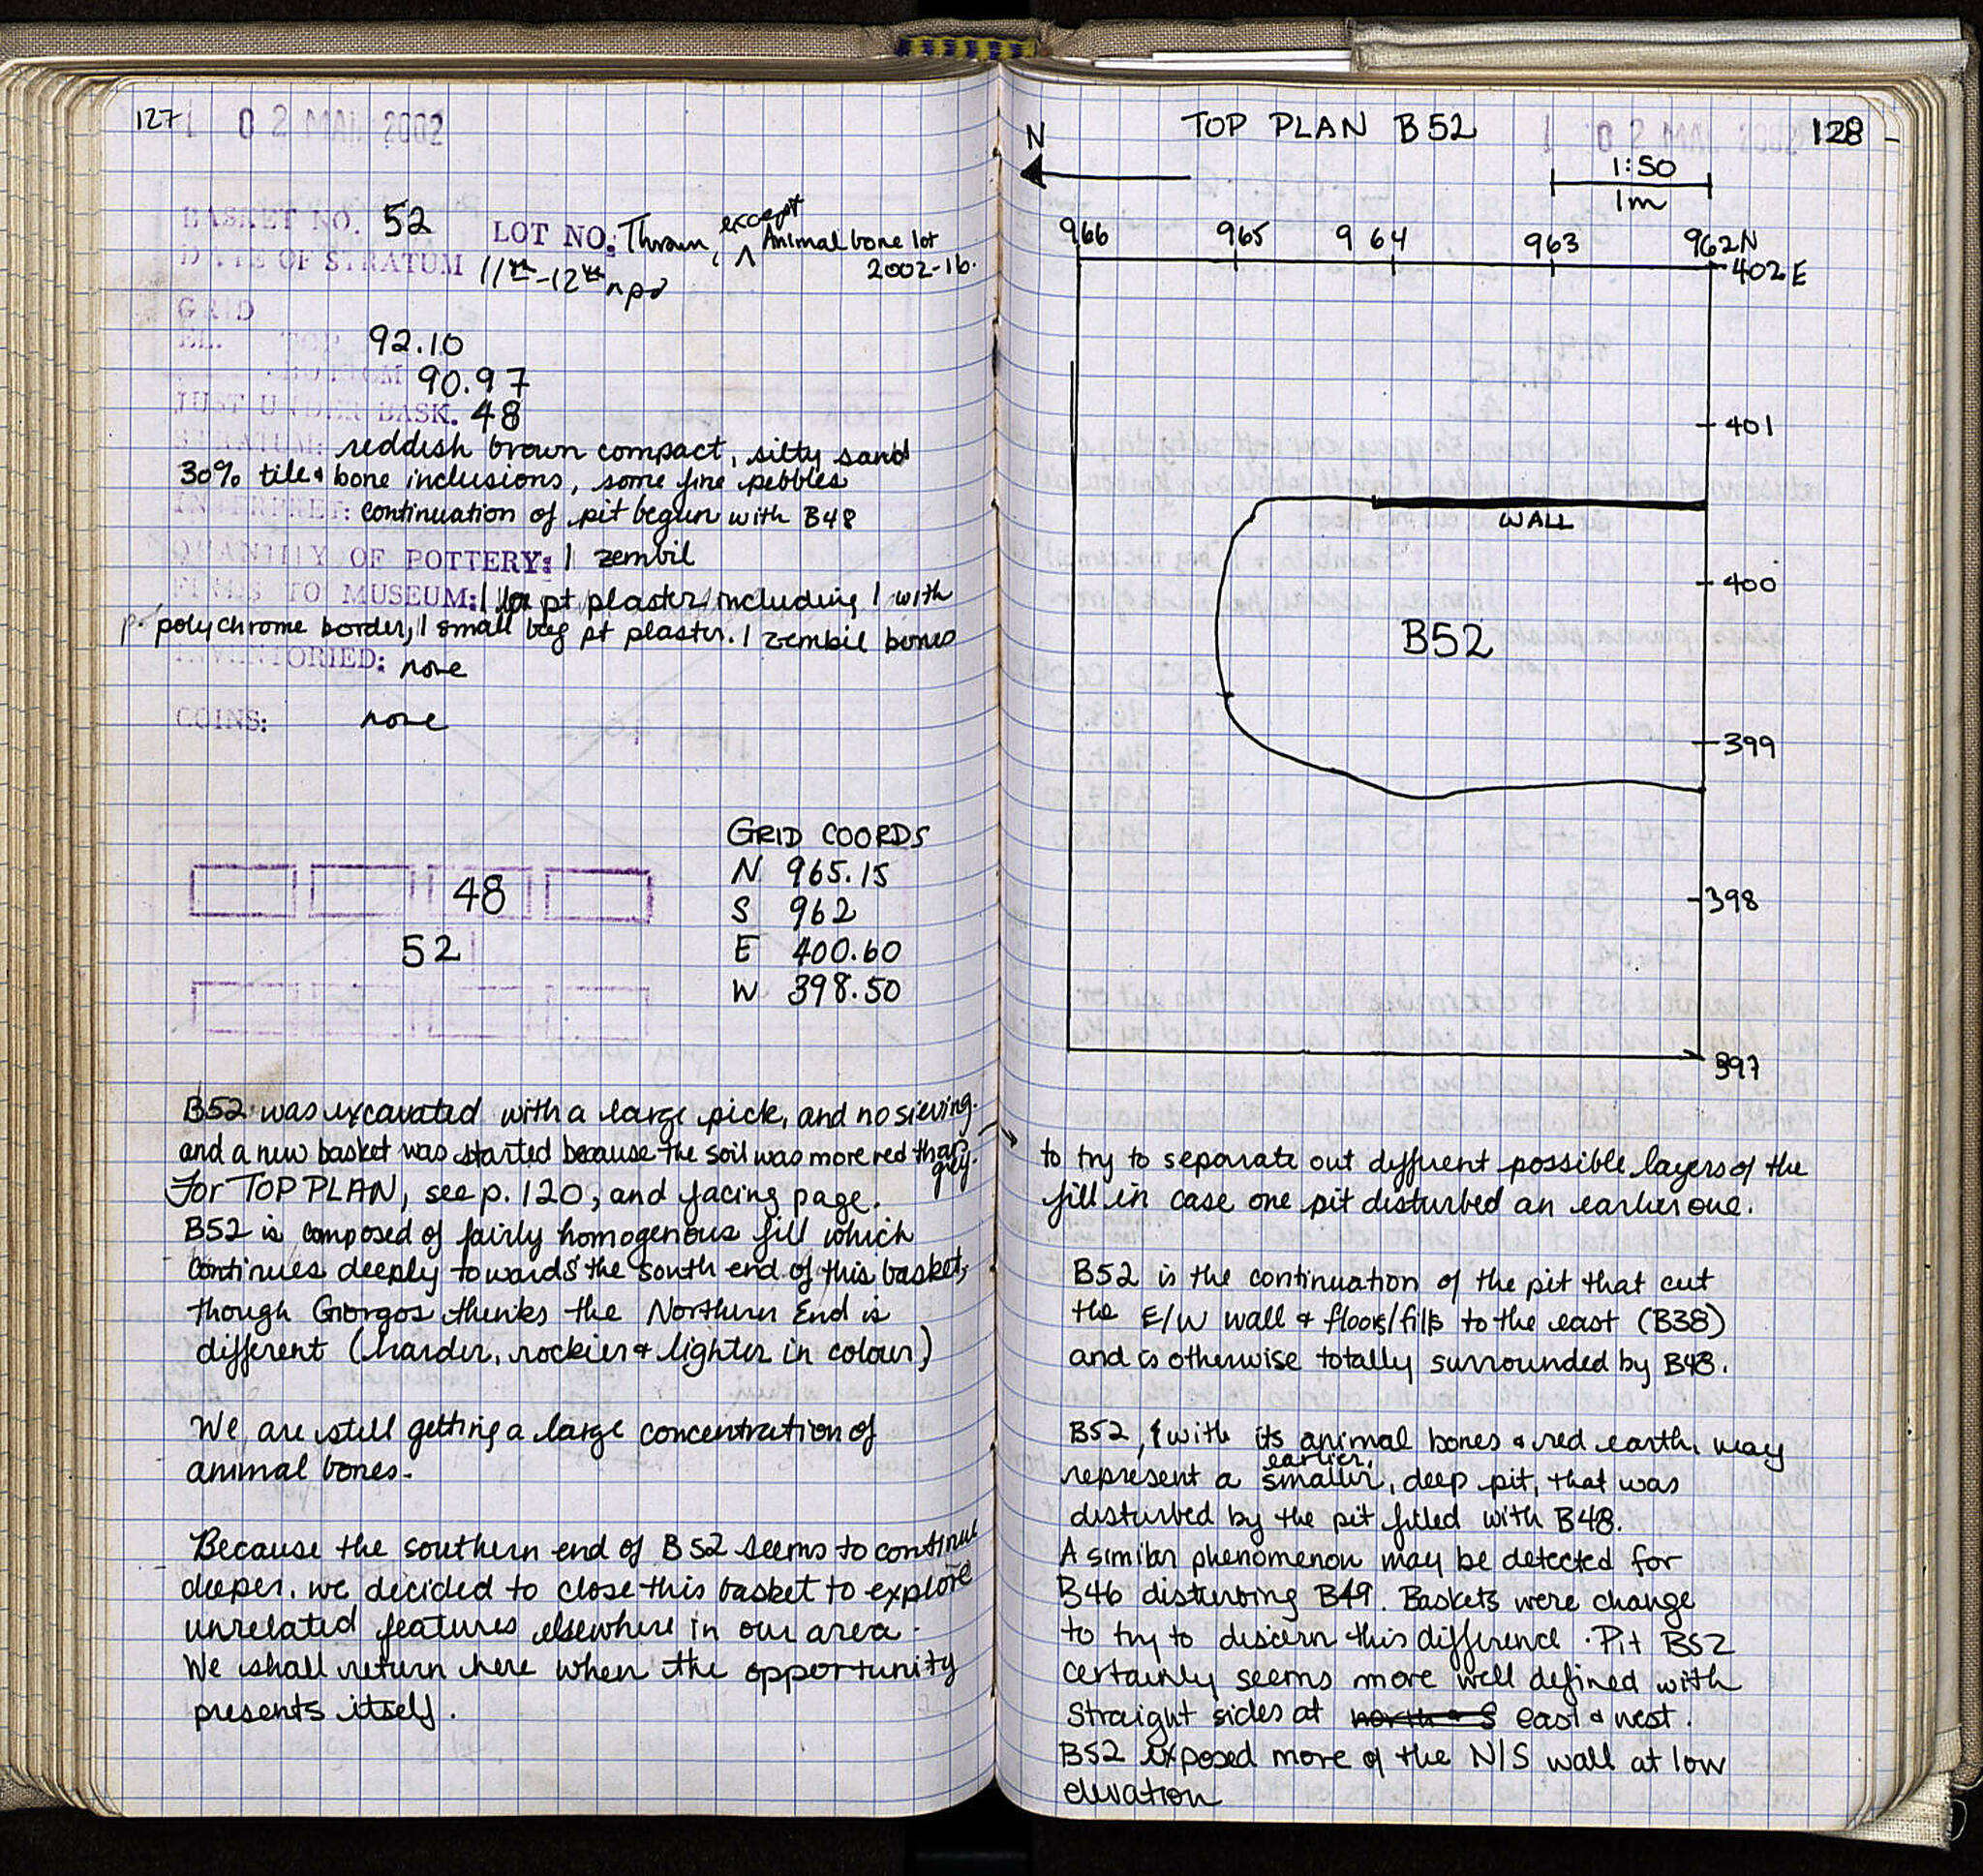 127
02 MAI 2002
BASKET NO. 52 LOT NO: Thrown, except Animal bone lot
2002-16.
DATE OF STRATUM 11th-12th npd
GRID
EL. TOP 92.10
BOTTOM 90.97
JUST UNDER BASK. 48
STRATUM: reddish brown compact, silty sand
30% tile & bone inclusions, some fine pebbles
INTERPRET: continuation of pit begun with B48
QUANTITY OF POTTERY: 1 zembil
FINDS TO MUSEUM: 1 pt plaster including 1 with
polychrome border, 1 small bag pt plaster. 1 zembil bones
INVENTORIED: none
COINS: none
GRID COORDS
N 965.15
S 962
E 400.60
W 398.50
48
52
B52 was excavated with a large pick, and no sieving.
and a new basket was started because the soil was more red than
grey.
For TOP PLAN, see p. 120, and facing page.
B52 is composed of fairly homogenous fill which
continues deeply towards the south end of this basket,
though Giorgos thinks the Northern End is
different (harder, rockier & lighter in colour)
We are still getting a large concentration of
animal bones.
Because the southern end of B52 seems to continue
deeper, we decided to close this basket to explore
unrelated features elsewhere in our area.
We shall return here when the opportunity
presents itself.
TOP PLAN B52
02 MAI 2002
128
N
1:50
1m
966 965 964 963 962N
402E
401
WALL
400
B52
399
398
397
to try to separate out different possible layers of the
fill in case one pit disturbed an earlier one.
B52 is the continuation of the pit that cut
the E/W wall & floors/fills to the east (B38)
and is otherwise totally surrounded by B48.
B52, with its animal bones & red earth, may
represent a smaller, earlier, deep pit, that was
disturbed by the pit filled with B48.
A similar phenomenon may be detected for
B46 disturbing B49. Baskets were change
to try to discern this difference. Pit B52
certainly seems more well defined with
straight sides at north & S east & west.
B52 exposed more of the N/S wall at low
elevation